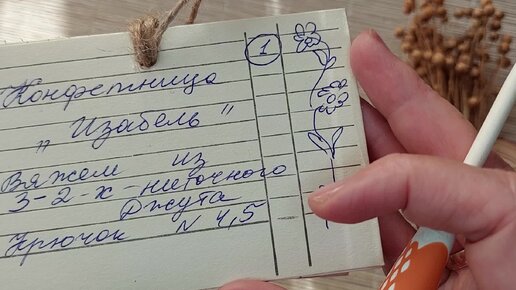 1
Конфетница
"Изабель"
Вяжем из
3-2-х-ниточного
Джута
Крючок N 4,5